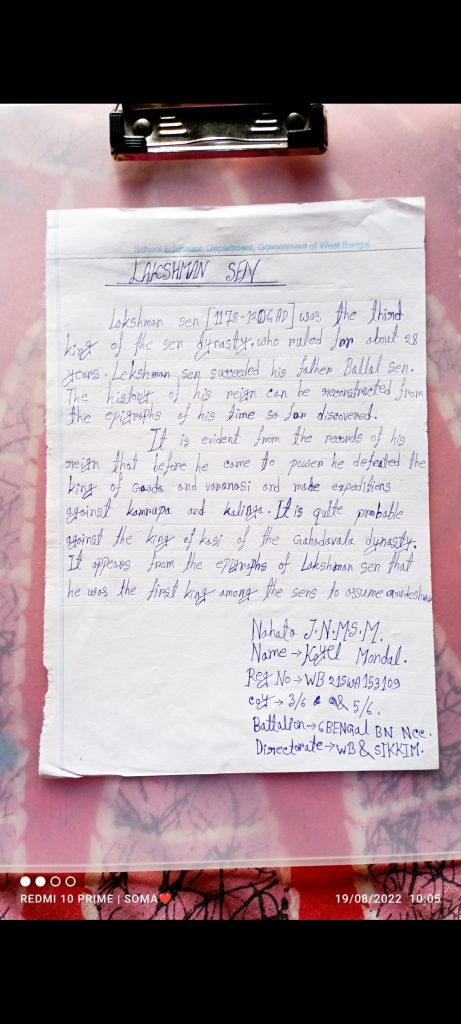 School Education Department, Government of West Bengal
LAKSHMAN SEN
Lakshman sen [1178-1206AD] was the third
king of the sen dynasty, who ruled for about 28
years. Lekshman sen succeeded his father Ballal sen.
The history of his reign can be reconstructed from
the epigraphs of his time so far discovered.
It is evident from the records of his
reign that before he came to power he defeated the
king of Gauda and varanosi and make expeditions
against kamrupa and kalinga. It is quite probable
against the king of kasi of the Gahadavala dynasty.
It appears from the epigraphs of Lakshman sen that
he was the first king among the sens to assume
Nahata J.N.M.S.M.
Name → Koyel Mondal.
Reg No → WB21SWA153109
coy → 3/6 & 5/6.
Battalion → 6BENGal BN Ncc.
Directorate → WB & SIKKIM.
REDMI 10 PRIME | SOMA❤
19/08/2022 10:05